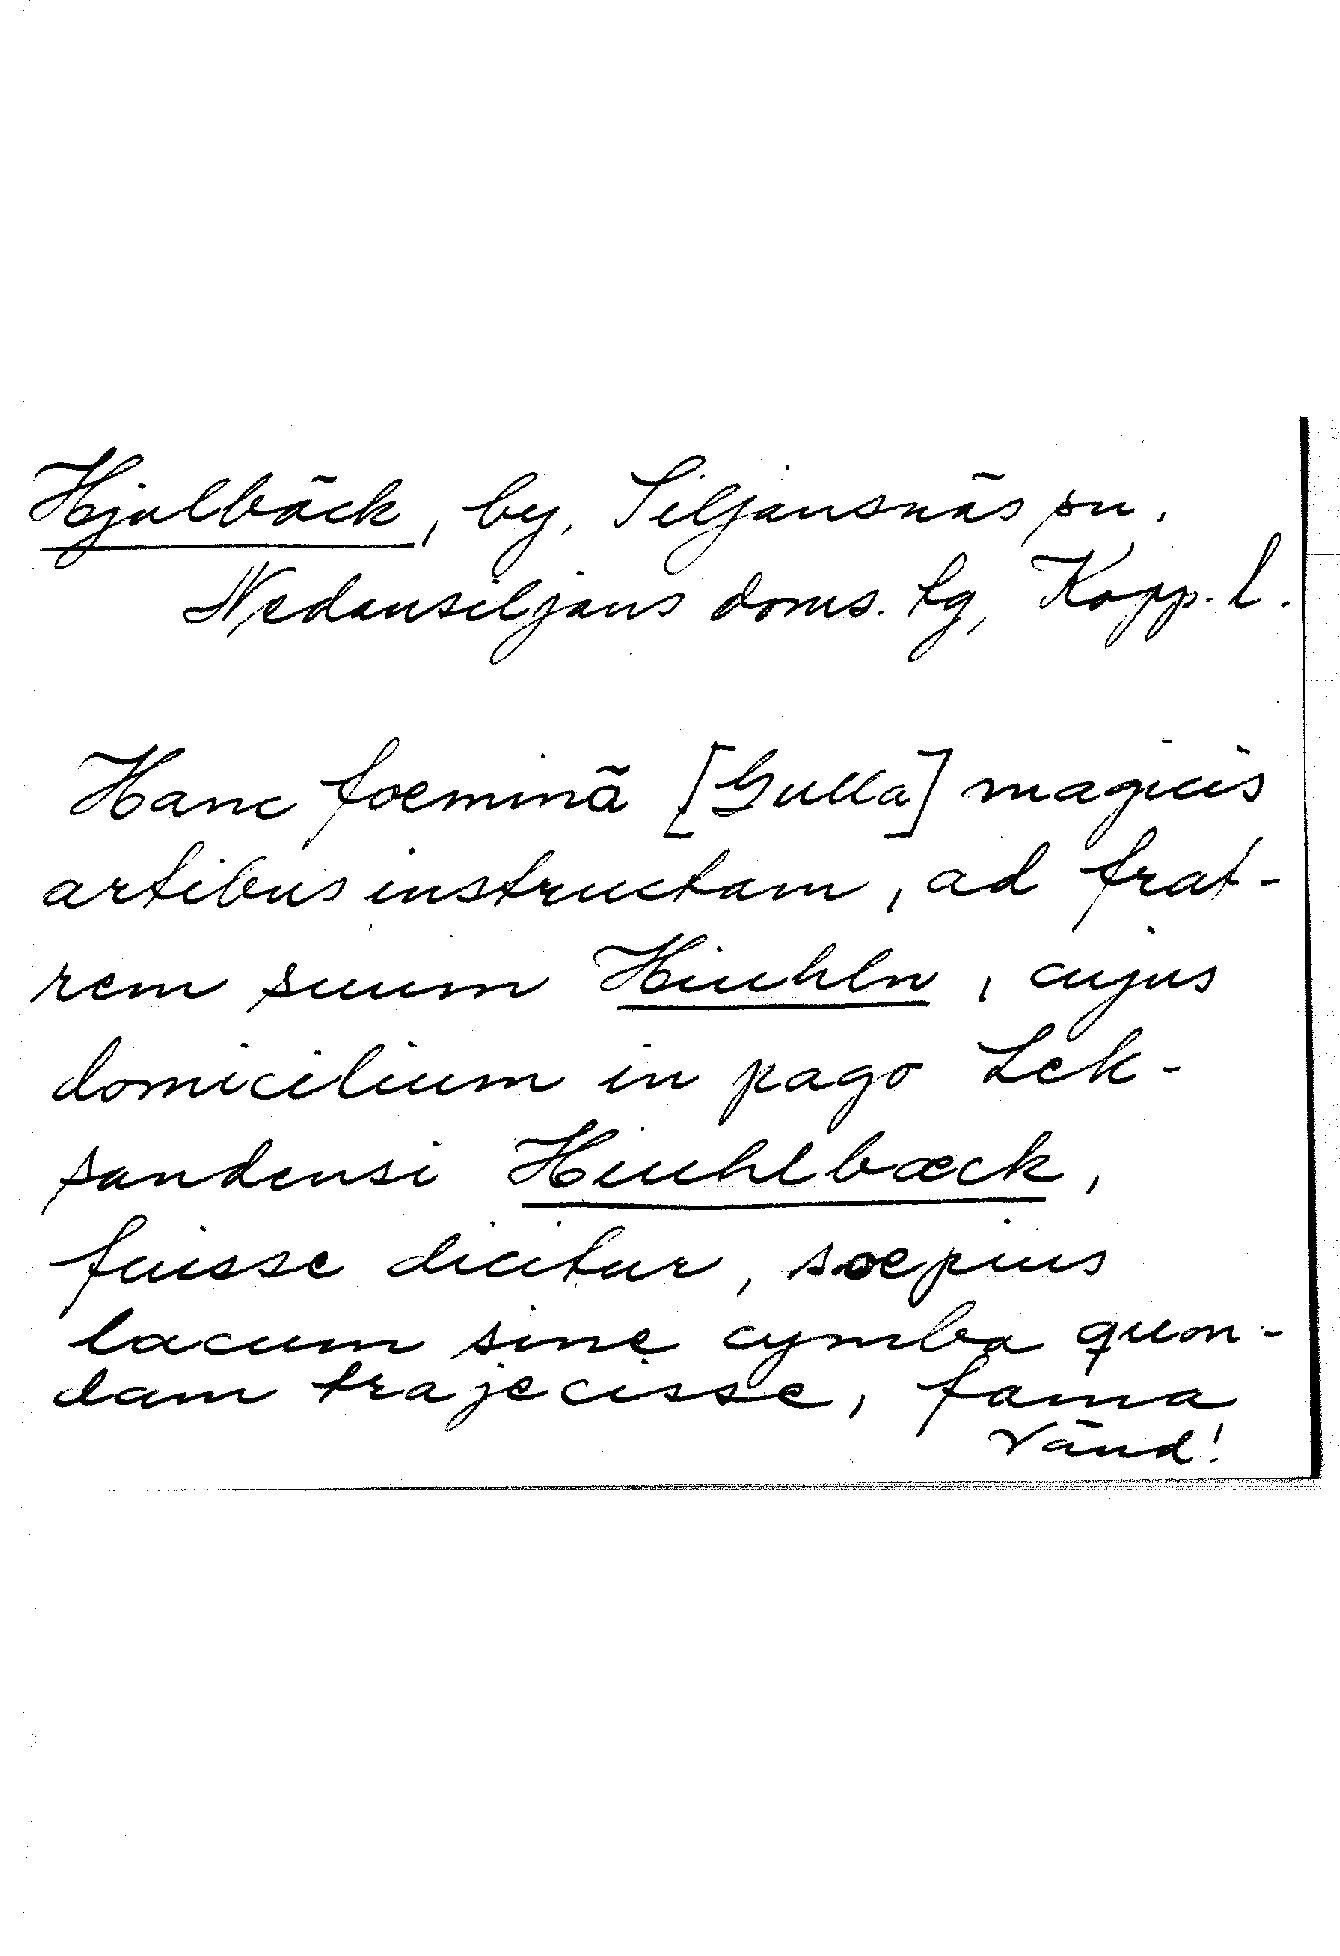 Hjulbäck, by, Siljansnäs sn,
Nedansiljans doms. tg, Kopp. l.
Hanc foeminā [Gulla] magicis
artibus instructam, ad frat-
rem suum Hiuhln, cujus
domicilium in pago Lek-
sandensi Hiuhlbæck,
fuisse dicitur, sæpius
lacum sine cymba quon-
dam trajecisse, fama
Vänd!